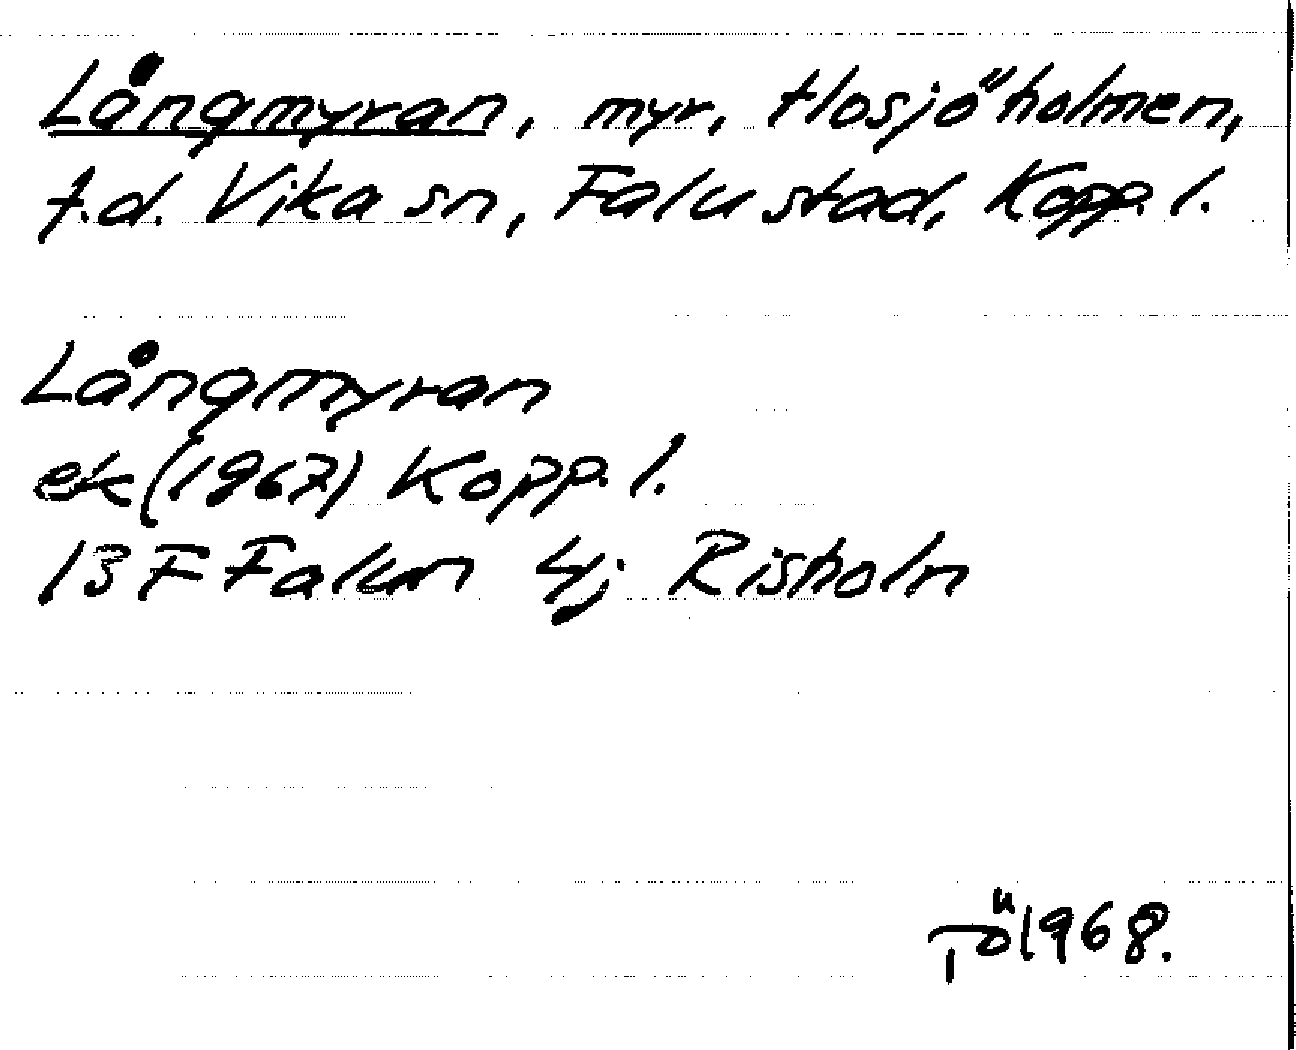 Långmyran, myr, Hosjöholmen,
f.d. Vika sn, Falu stad, Kopp. l.
Långmyran
ek (1967) Kopp. l.
13 F Falun 4j Risholn
TÖ 1968.